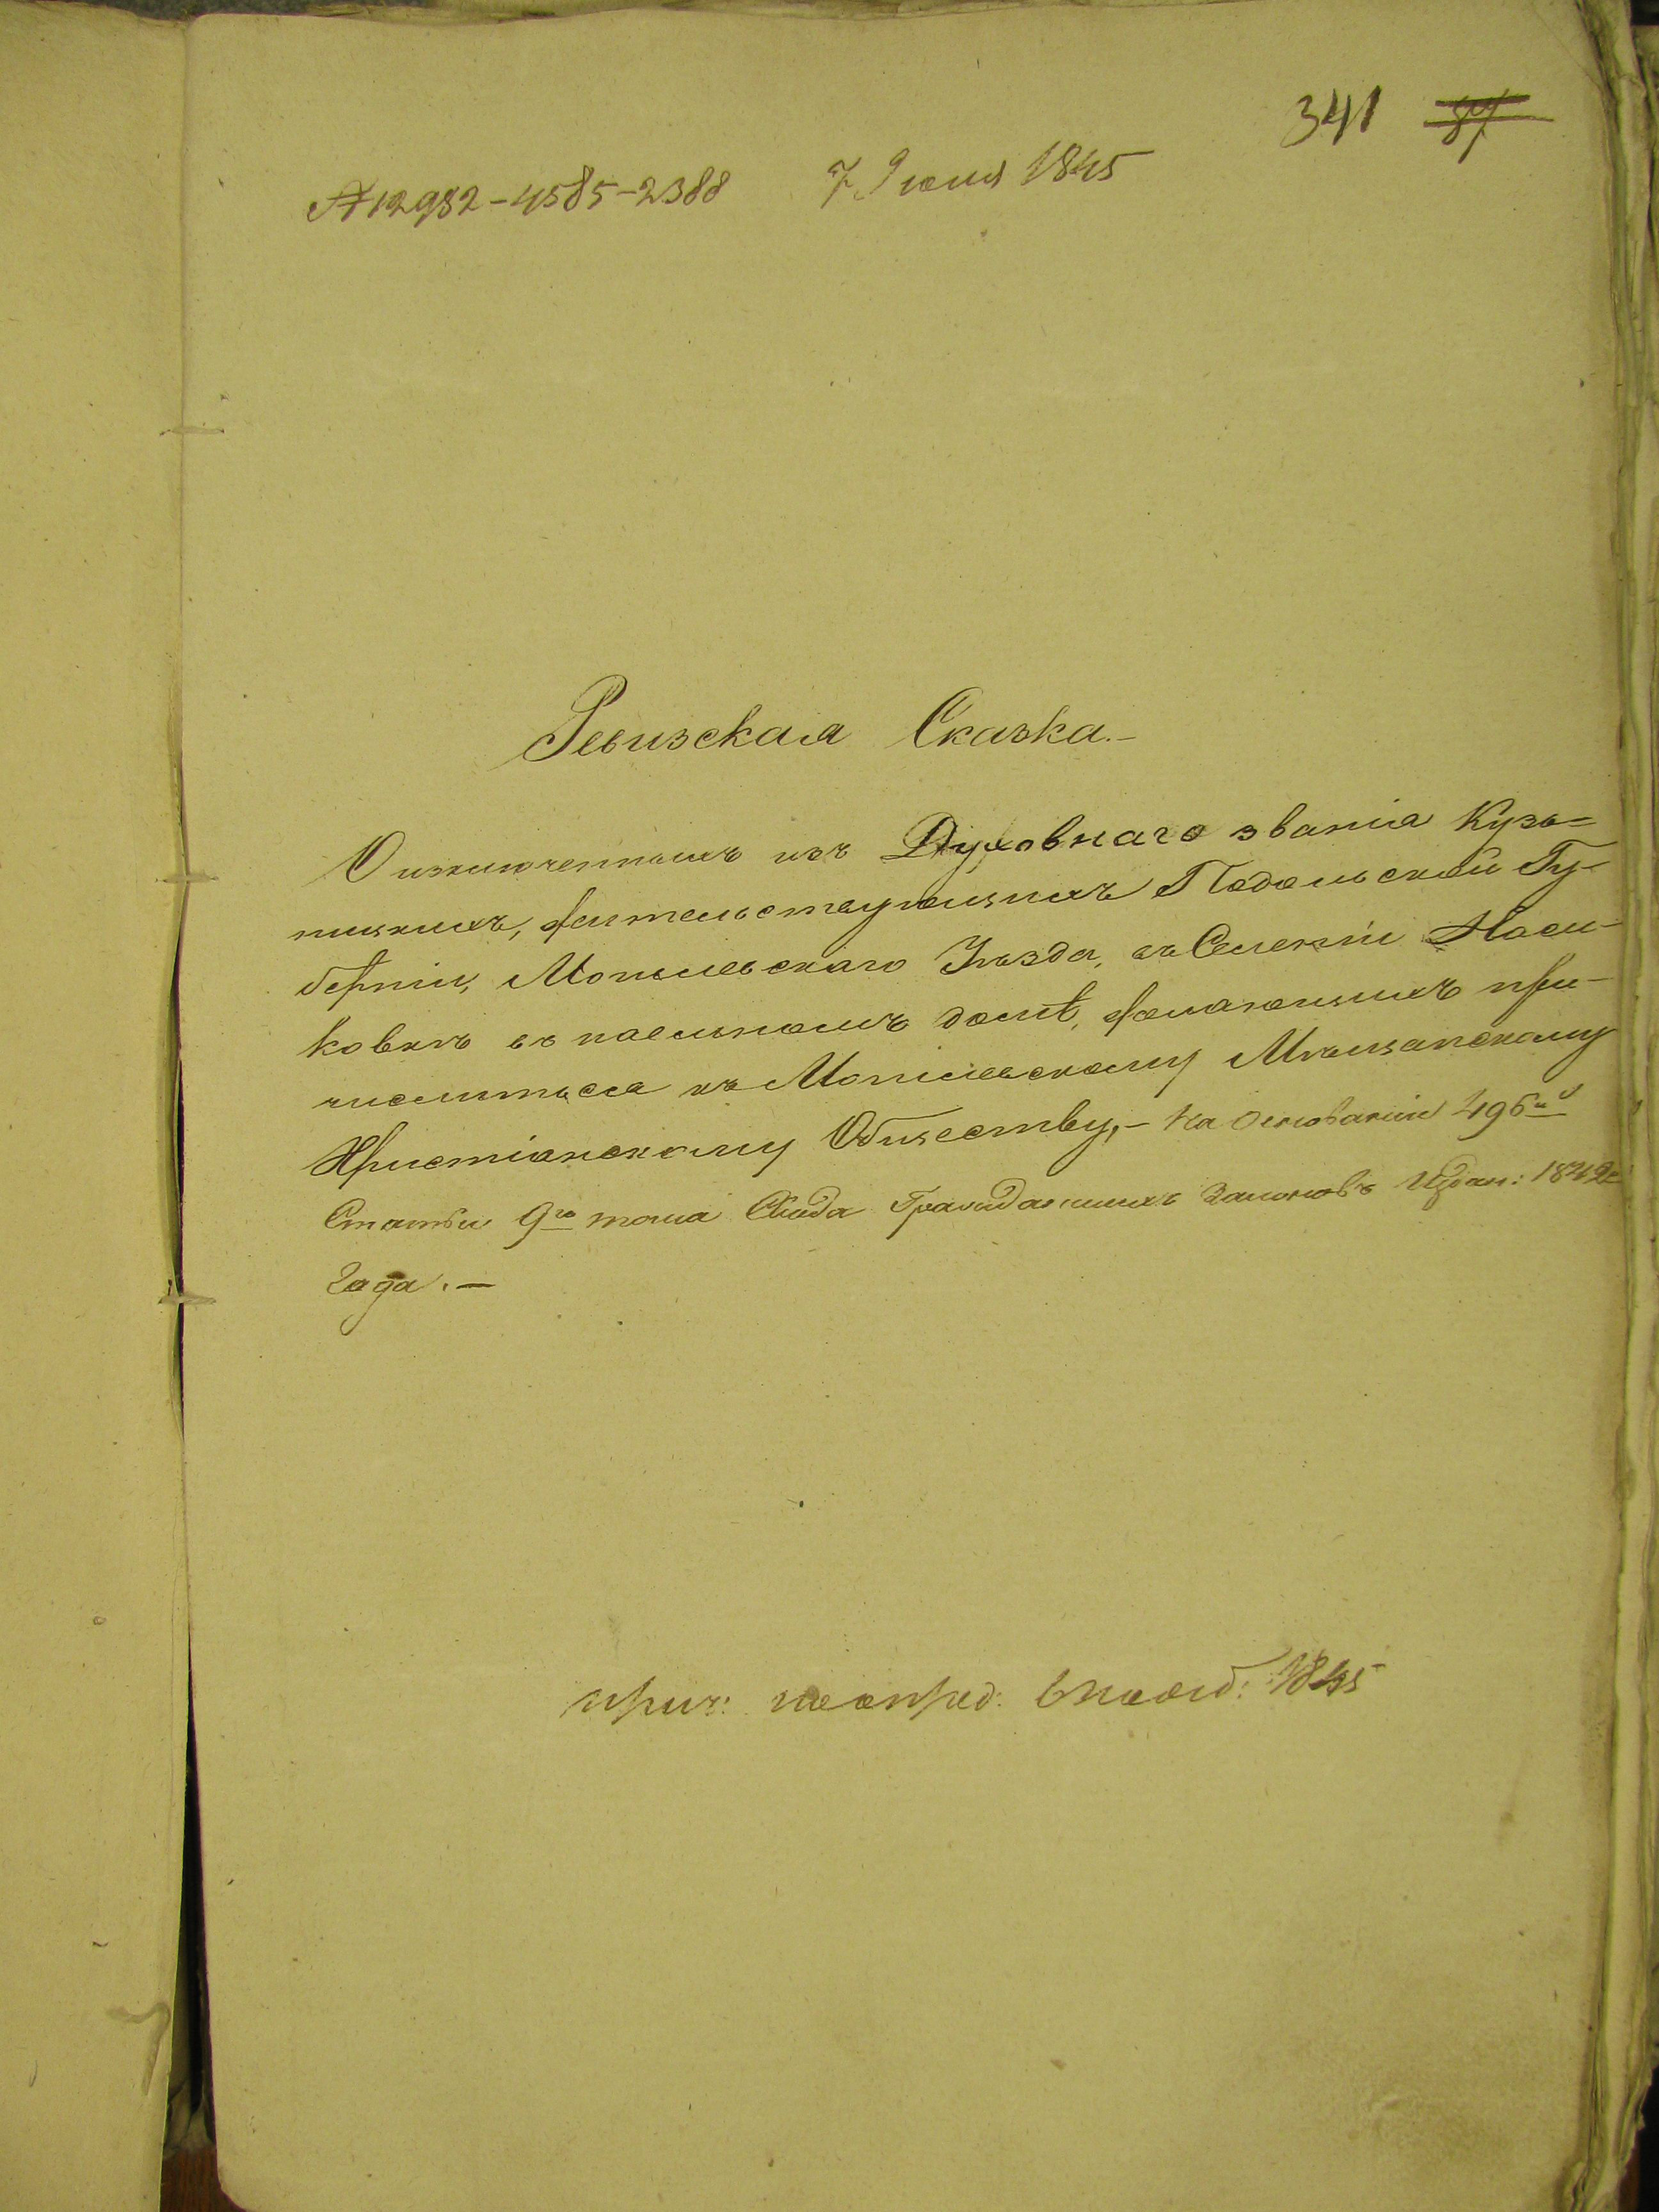 341 87
№ 12982-4585-2388 7 Июня 1845
Ревизская Сказка.-
О изключенныхъ изъ Духовнаго званія Кузь=
жительствующихъ Подольской Гу-
берніи, Могилевскаго Уѣзда, въ Селеніи
въ наемномъ домѣ, желающихъ при-
числиться къ Могилевскому Мѣщанскому
Христіанскому Обществу,- на основаніи 496й
Статьи 9го тома Свода Гражданскихъ Законовъ Издан: 1842го
Года.-
прич: 1845